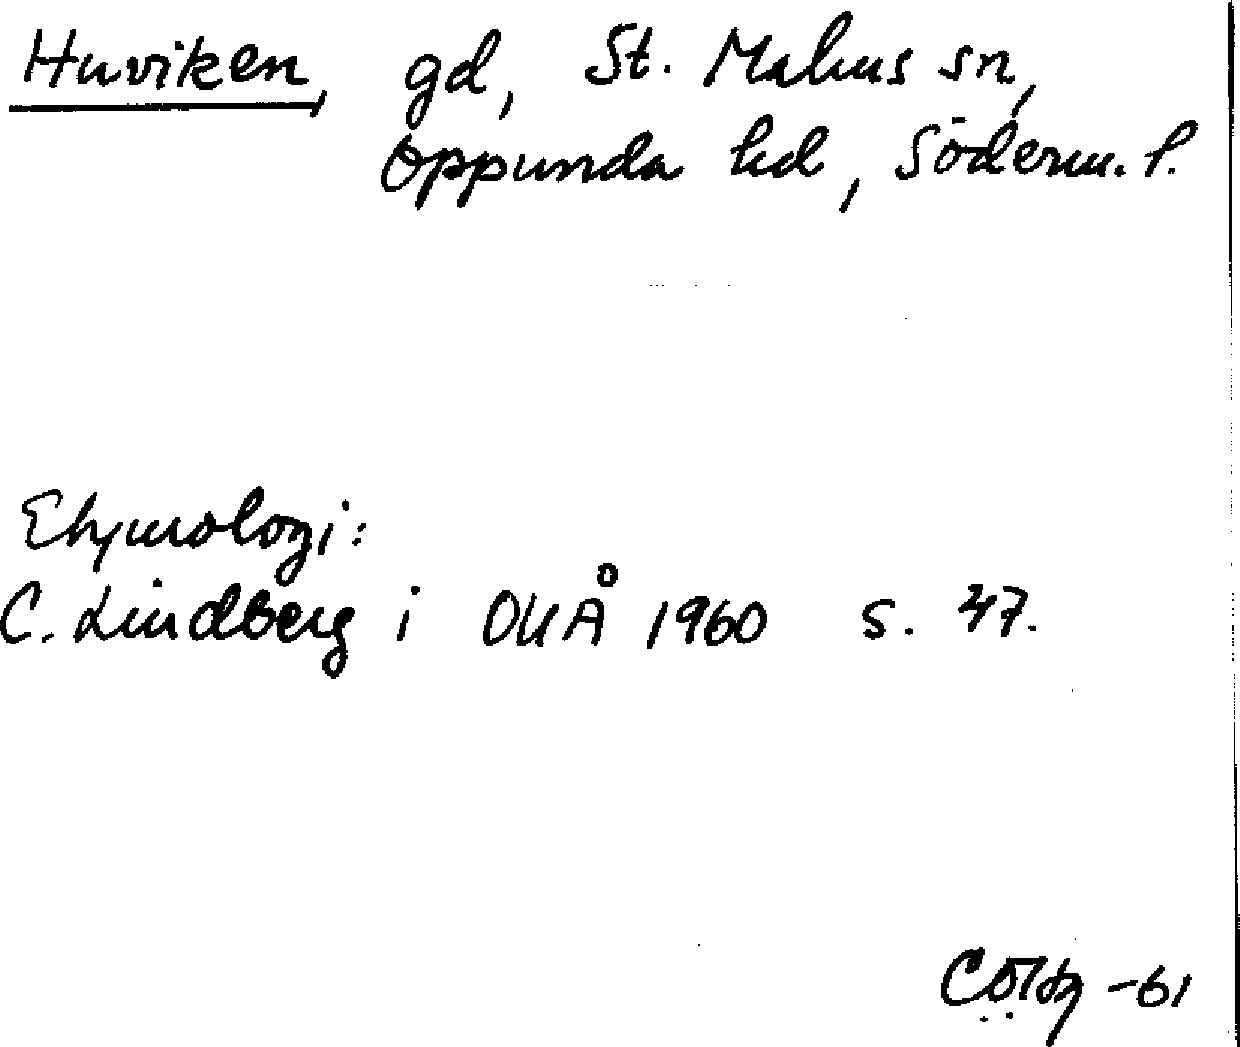 Huviken, gd, St. Malms sn,
Oppunda hd, Söderm. l.
Etymologi:
C. Lindberg i OUÅ 1960 s. 47.
-61